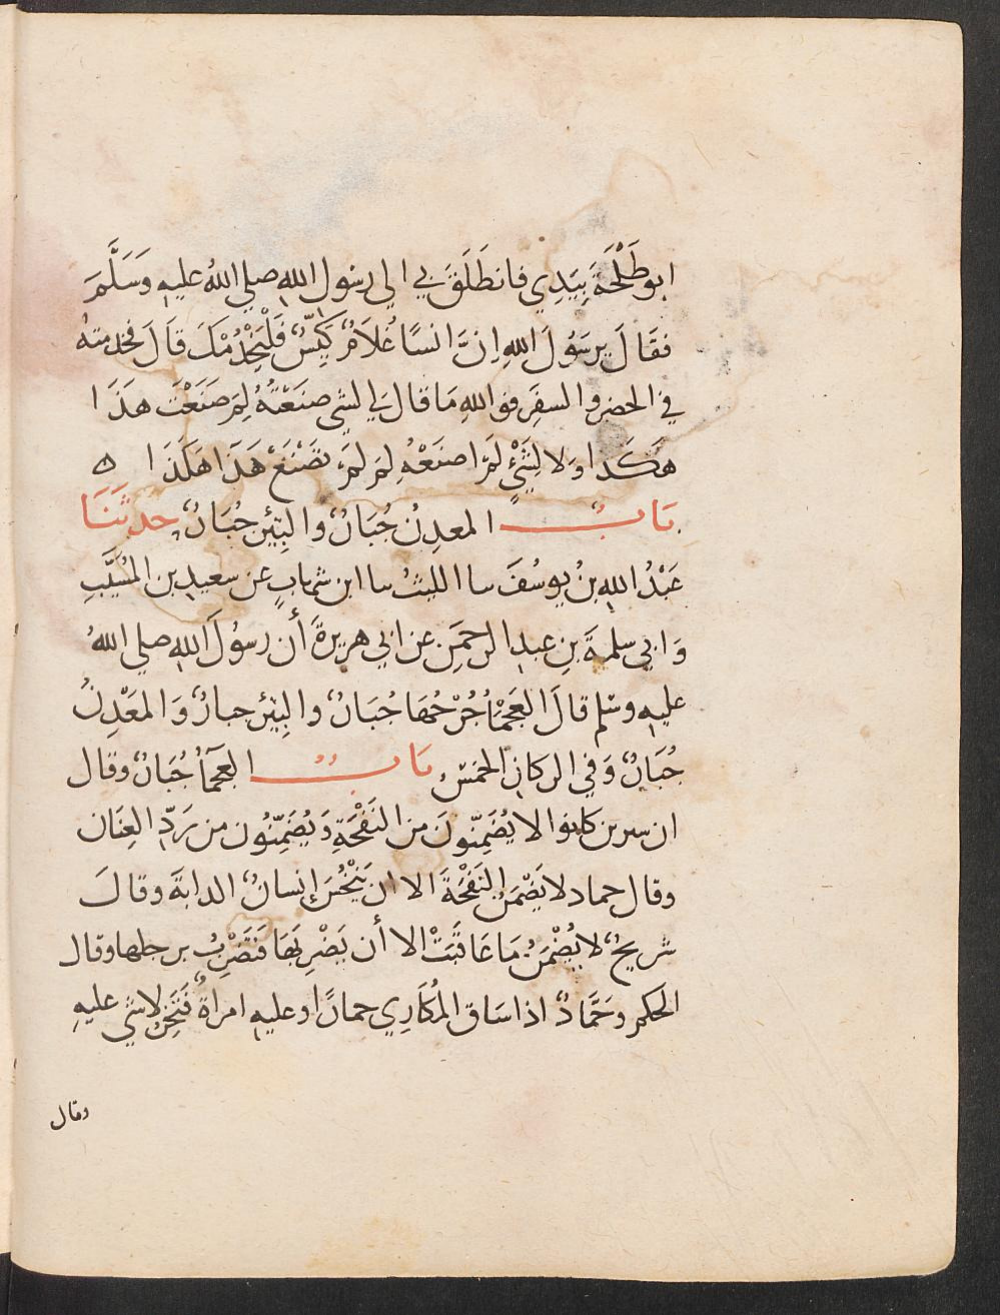 ابو طَلْحَةَ بِيَدِي فانطَلَقَ بي الى رسُول الله صلى اللهُ عليه وَسَلَّمَ
فقَالَ يرسَوُلَ الله اِنَّ انسًا غُلَامٌ كَيِّسٌ فَلْيَخْدُمْكَ قَالَ فخدمتهُ
في الحضر والسفَرِ فو اللهِ مَا قال لي لشى صنَعْتُهُ لِمَ صَنَعْتَ هَذَا
هَكَذا وَلا لِشَيْءٍ لَمْ اصنَعْهُ لِمَ لَمْ تَصْنَعْ هَذَا هَكَذَا ه
بَابُ المعدِنُ جُبَارٌ والبِئْرُ جُبَارٌ حدثَنَا
عَبْدُ اللهِ بنُ يوسُفَ سا الليثُ سا ابن شهابٍ عن سعيدِ بن المُسَيَّبِ
وَابي سلمةَ بنِ عبدِ الرحمَنِ عن ابي هريرةَ أن رسُولَ اللهِ صلى اللهُ
عليه وسلم قالَ العَجْمَاءُ جُرْحُهَا جُبَارٌ والبِئْرُ جبارٌ وَالمَعْدِنُ
جُبَارٌ وَفي الركازِ الخمسُ بَابُ العجمَآءُ جُبَارٌ وقال
ابن سرين كانوا لا يُضَمِّنُونَ من النَفْحَةِ وَيُضَمِّنُون من رَدِّ العِنَان
وقال حماد لا يَضْمَنُ النَفْحَةَ الا ان يَنْخُسَ اِنسانٌ الدابةَ وقالَ
شريحٌ لا يُضْمَنُ مَا عَاقَبَتْ الا أن يَضْرِبَهَا فَتَضْرِبُ برجلها وقال
الحكم وحَمَّادٌ اذا سَاق المُكَارِي حمارًا وعليهِ امراةٌ فَتَخِرُّ لا شي عليهِ
وقال